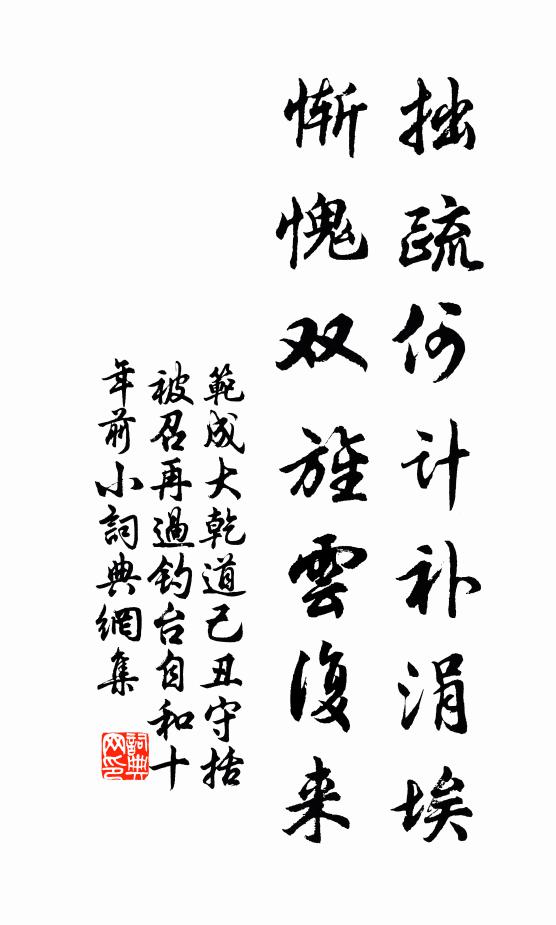 拙疏何计补涓埃
惭愧双旌雲復来
範成大乾道己丑守括
被召再過钓台自和十
年前小詞典網集
詞典网印